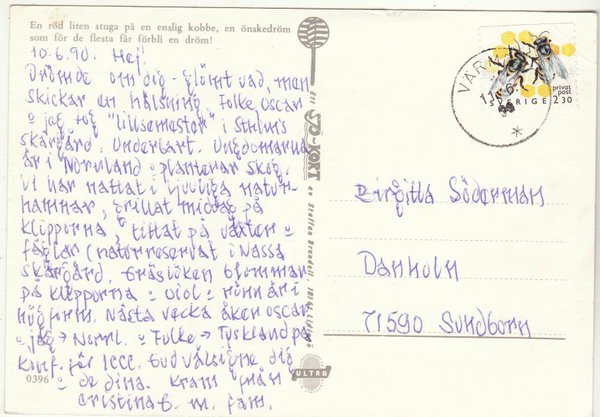 En röd liten stuga på en enslig kobbe, en önskedröm
som för de flesta får förbli en dröm!
10.6.90. Hej!
Drömde om dig - glömt vad, men
skickar en hälsning. Folke, Oscar
o jag tog "lillsemester" i Sthlms
skärgård. Underbart. Ungdomarna
är i Norrland o planterar skog.
Vi har nattat i ljuvliga natur-
hamnar, grillat middag på
klipporna, tittat på växter o
fåglar (naturreservat i Nassa
skärgård. Gräslöken blommar
på klipporna o viol o rönn är i
högform. Nästa vecka åker Oscar
o jag → Norrl. o Folke → Tyskland på
konf. för ICCC. Gud välsigne dig
o de dina. Kram från
Cristina B. m. fam.
0396
ett SJÖ-KORT
av Staffan Brundell
ULTRA
VÄR
11.6.
privat
post
SVERIGE 2.30
Birgitta Söderman
Danholn
71590 Sundborn